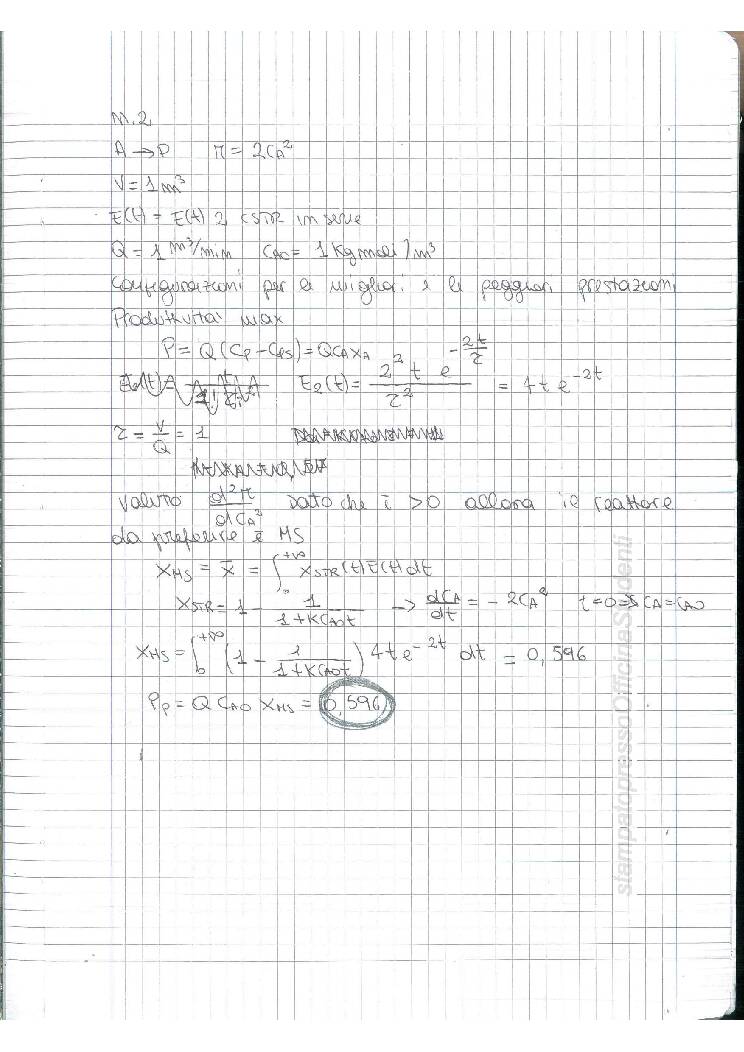 N.2
A → P r = 2CA²
V = 1 m³
E(t) = E(t) 2 CSTR in serie
Q = 1 m³/min CAO = 1 Kgmoli/m³
Configurazioni per le migliori e le peggiori prestazioni
Produttività max
P = Q (CP - CPS) = QCAXA
E2(t) = 2² t e^(-2t/τ) / τ² = 4 t e^(-2t)
τ = V/Q = 1
Valuto d²r/dCA² dato che è >0 allora il reattore
da preferire è MS
XMS = X̄ = ∫₀^+∞ XSTR(t) E(t) dt
XSTR = 1 - 1/(1+KCAOt) → dCA/dt = - 2CA² t=0 => CA=CAO
XMS = ∫₀^+∞ (1 - 1/(1+KCAOt)) 4te^(-2t) dt = 0,596
PP = Q CAO XMS = 0,596
stampatopressoOfficinaStudenti